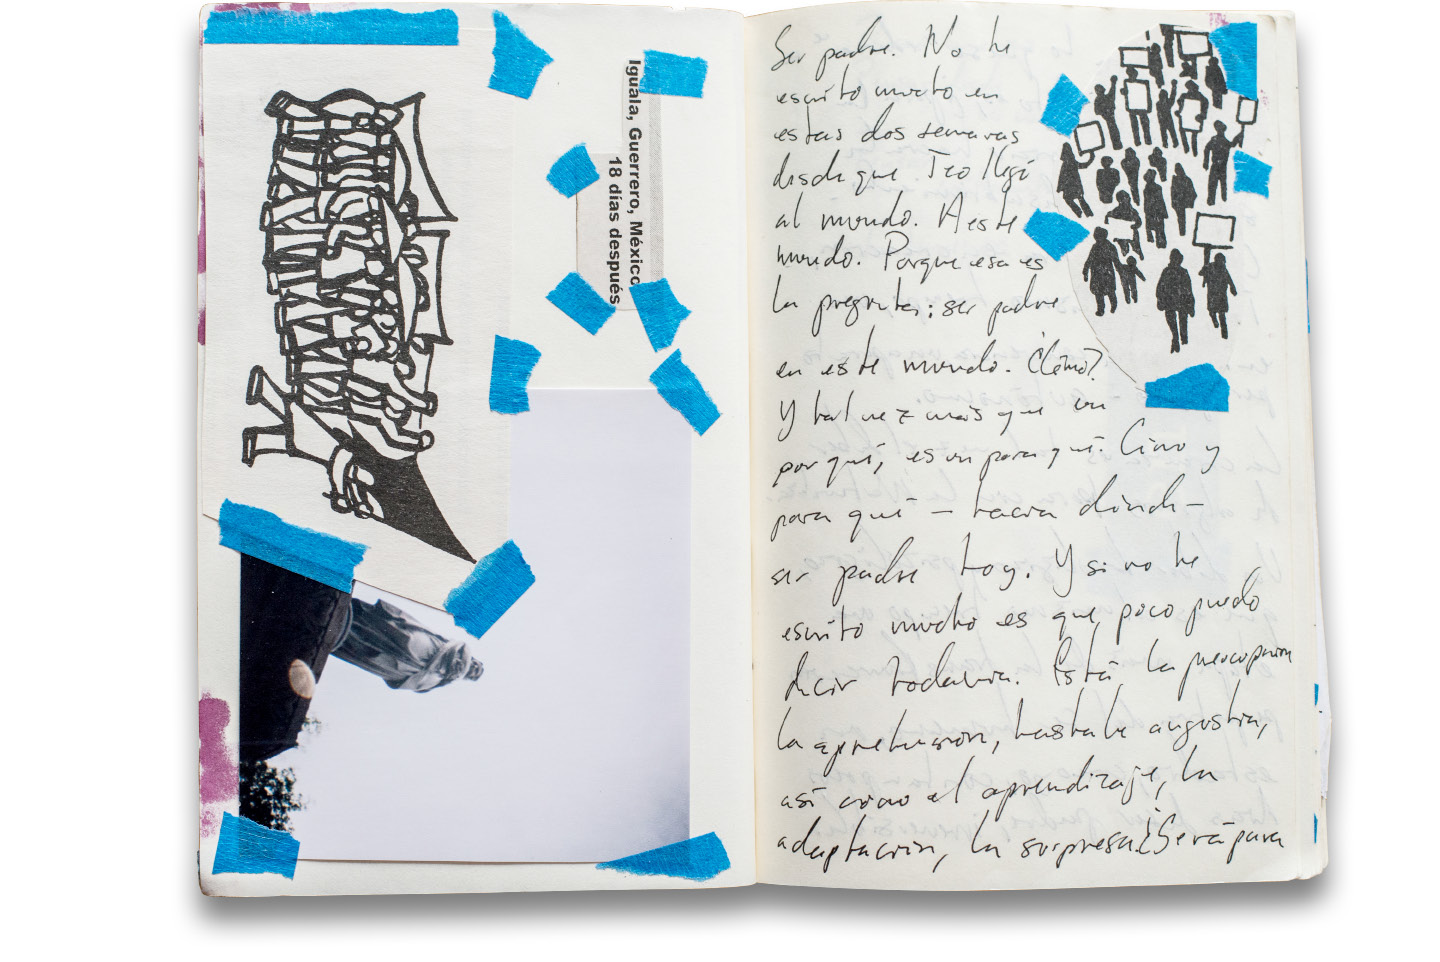 Iguala, Guerrero, México
18 días después
Ser padre. No he
escrito mucho en
estas dos semanas
desde que Teo llegó
al mundo. A este
mundo. Porque esa es
la pregunta: ser padre
en este mundo. ¿Cómo?
Y tal vez más que un
por qué, es un para qué. Cómo y
para qué – hacia dónde –
ser padre hoy. Y si no he
escrito mucho es que poco puedo
decir todavía. Está la preocupación
la apretuzón, hasta la angustia,
así como el aprendizaje, la
adaptación, la sorpresa. ¿Será para